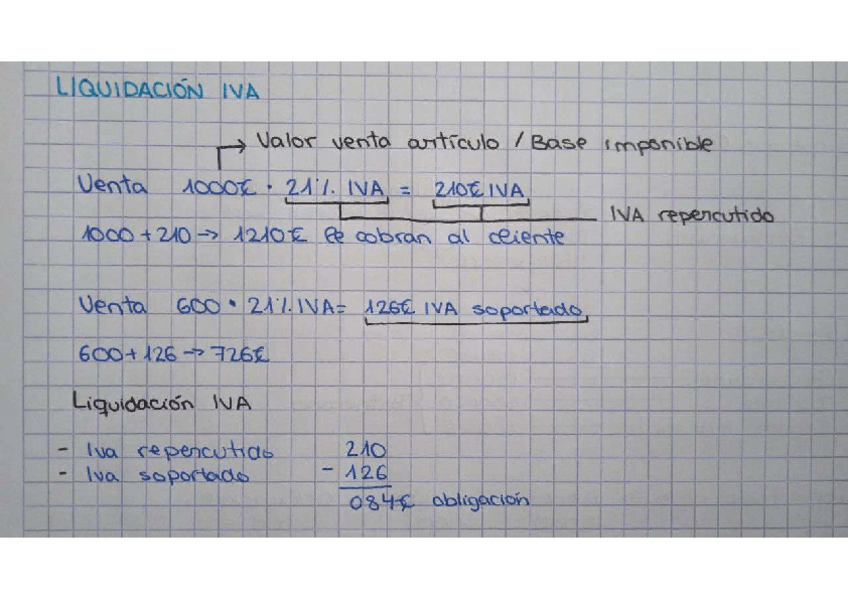 LIQUIDACIÓN IVA
→ Valor venta artículo / Base imponible
Venta 1000€ · 21%. IVA = 210€ IVA
IVA repercutido
1000 + 210 → 1210€ le cobran al cliente
Venta 600 · 21%. IVA = 126€ IVA soportado
600 + 126 → 726€
Liquidación IVA
- Iva repercutido 210
- Iva soportado - 126
084€ obligación